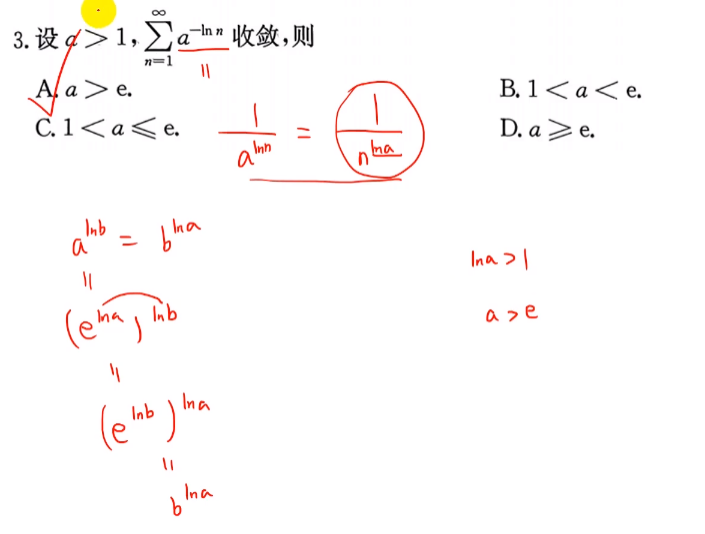 3. 设 a > 1, ∑_{n=1}^{∞} a^{-ln n} 收敛,则
A. a > e.
B. 1 < a < e.
C. 1 < a ⩽ e.
D. a ⩾ e.
= 1/a^{ln n} = 1/n^{ln a}
a^{ln b} = b^{ln a}
=
(e^{ln a})^{ln b}
=
(e^{ln b})^{ln a}
=
b^{ln a}
ln a > 1
a > e